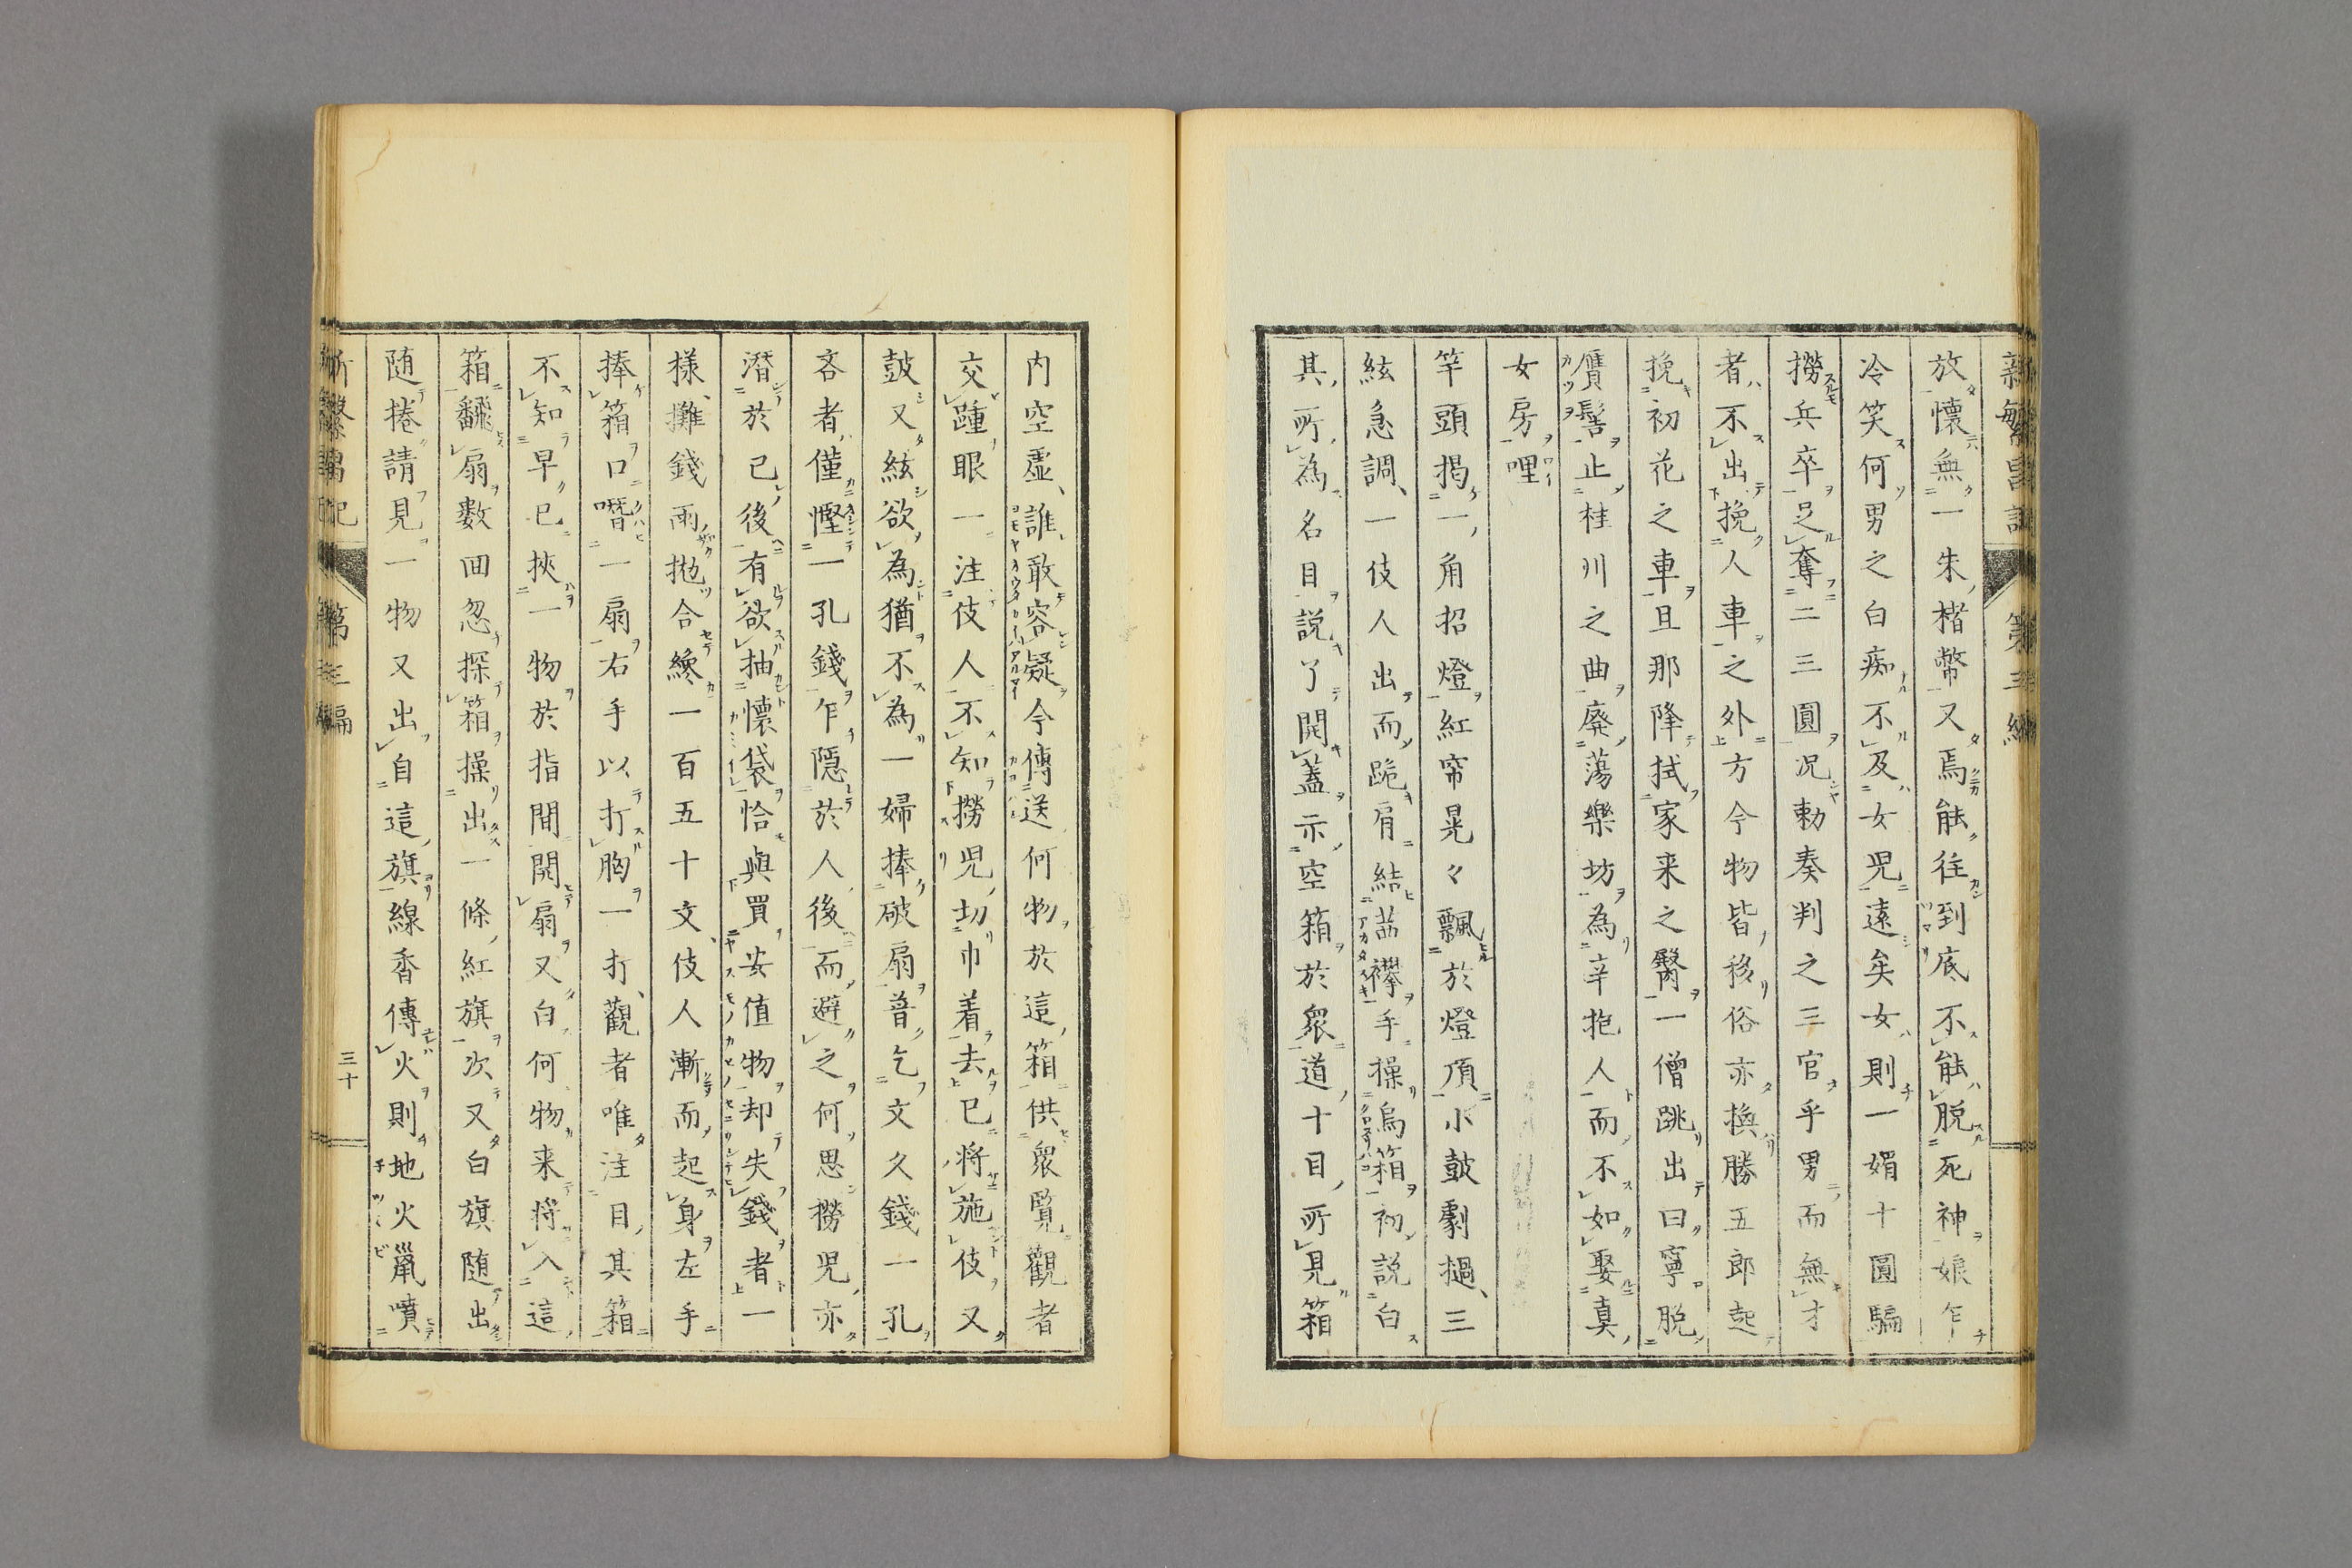 新繁昌記 第三編
放懐無一朱楮幣又焉能往到底不能脱死神娘乍
冷笑何男之白痴不及女児遠矣女則一娼十圓騙
撈兵卒足奪二三圓况勅奏判之三官乎男而無才
者不出挽人車之外方今物皆移俗亦換勝五郎起
挽初花之車旦那降拭家来之臀一僧跳出曰寧脱
贋髻止桂川之曲廃蕩樂坊為辛抱人而不如娶真
女房哩
竿頭掲一角招燈紅帘晃々飄於燈頂小鼓劇撾三
絃急調一伎人出而跪肩結茜襷手操烏箱初説白
其所為名目説了開蓋示空箱於衆道十目所見箱
内空虚誰敢容疑今傳送何物於這箱供衆覧觀者
交踵眼一注伎人不知撈児切巾着去已将施伎又
鼓又絃欲為猶不為一婦捧破扇普乞文久錢一孔
吝者僅慳一孔錢乍隠於人後而避之何思撈児亦
潜於已後有欲抽懐袋恰與買安値物却失錢者一
様攤錢雨抛合纔一百五十文伎人漸而起身左手
捧箱口噆一扇右手以打胸一打觀者唯注目其箱
不知早已挾一物於指間開扇又白何物来将入這
箱飜扇數回忽探箱操出一條紅旗次又白旗随出
随捲請見一物又出自這旗線香傳火則地火鼠噴
新繁昌記 第三編 三十